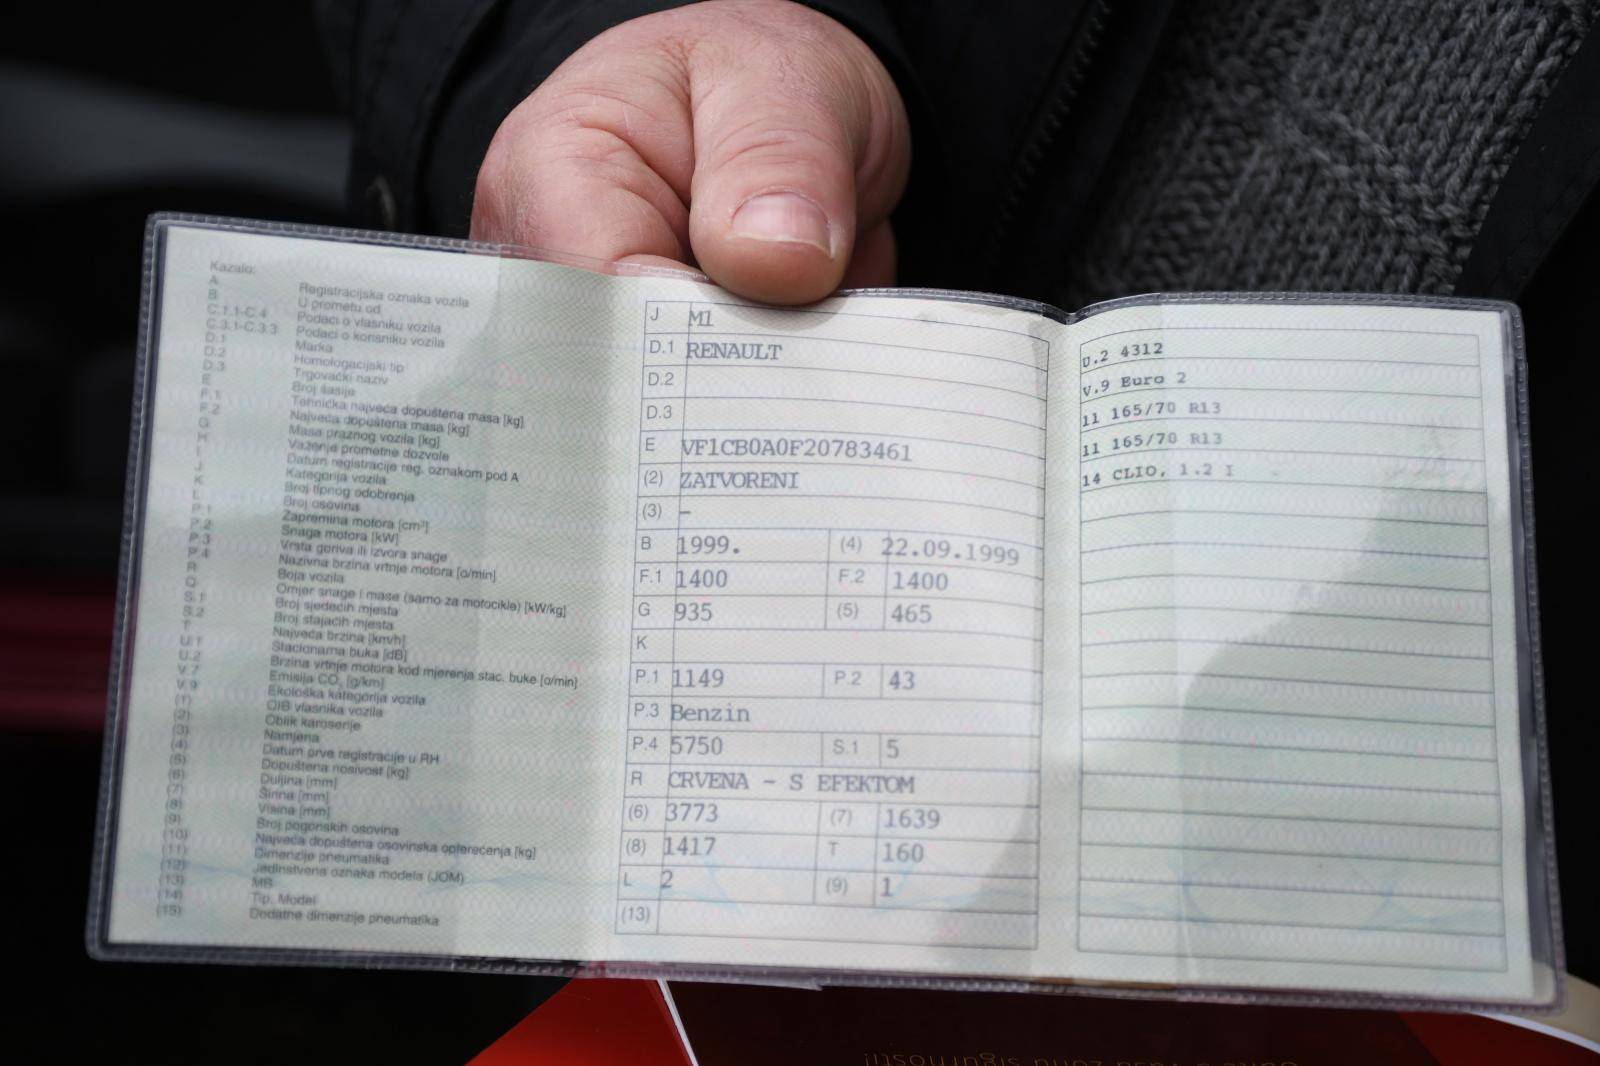 Kazalo:
A Registracijska oznaka vozila
B U prometu od
C.1.1-C.4 Podaci o vlasniku vozila
C.3.1-C.3.3 Podaci o korisniku vozila
D.1 Marka
D.2 Homologacijski tip
D.3 Trgovački naziv
E Broj šasije
F.1 Tehnička najveća dopuštena masa [kg]
F.2 Najveća dopuštena masa [kg]
G Masa praznog vozila [kg]
H Važenje prometne dozvole
I Datum registracije reg. oznakom pod A
J Kategorija vozila
K Broj tipnog odobrenja
L Broj osovina
P.1 Zapremina motora [cm³]
P.2 Snaga motora [kW]
P.3 Vrsta goriva ili izvora snage
P.4 Nazivna brzina vrtnje motora [o/min]
R Boja vozila
Q Omjer snage i mase (samo za motocikle) [kW/kg]
S.1 Broj sjedećih mjesta
S.2 Broj stajaćih mjesta
T Najveća brzina [km/h]
U.1 Stacionarna buka [dB]
U.2 Brzina vrtnje motora kod mjerenja stac. buke [o/min]
V.7 Emisija CO₂ [g/km]
V.9 Ekološka kategorija vozila
(1) OIB vlasnika vozila
(2) Oblik karoserije
(3) Namjena
(4) Datum prve registracije u RH
(5) Dopuštena nosivost [kg]
(6) Duljina [mm]
(7) Širina [mm]
(8) Visina [mm]
(9) Broj pogonskih osovina
(10) Najveća dopuštena osovinska opterećenja [kg]
(11) Dimenzije pneumatika
(12) Jedinstvena oznaka modela (JOM)
(13) MB
(14) Tip, Model
(15) Dodatne dimenzije pneumatika
J M1
D.1 RENAULT
D.2
D.3
E VF1CB0A0F20783461
(2) ZATVORENI
(3) –
B 1999. (4) 22.09.1999
F.1 1400 F.2 1400
G 935 (5) 465
K
P.1 1149 P.2 43
P.3 Benzin
P.4 5750 S.1 5
R CRVENA - S EFEKTOM
(6) 3773 (7) 1639
(8) 1417 T 160
L 2 (9) 1
(13)
U.2 4312
V.9 Euro 2
11 165/70 R13
11 165/70 R13
14 CLIO, 1.2 I
zonu sigurnosti!